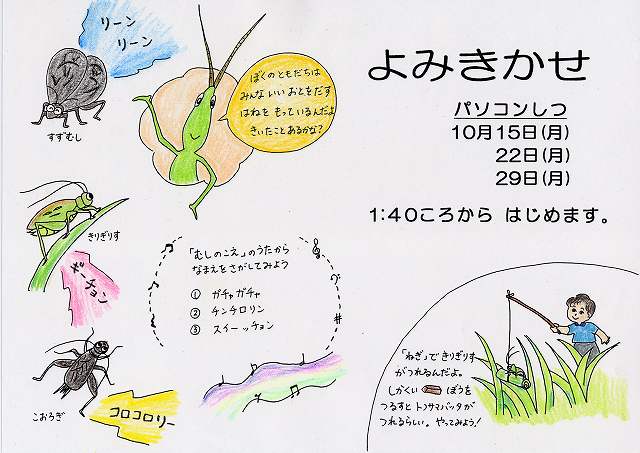 リーン
リーン
すずむし
ぼくのともだちは
みんないいおとをだす
はねを もっているんだよ
きいたことあるかな?
よみきかせ
パソコンしつ
10月15日(月)
22日(月)
29日(月)
1:40ころから はじめます。
きりぎりす
ギーチョン
「むしのこえ」のうたから
なまえをさがしてみよう
① ガチャガチャ
② チンチロリン
③ スイーッチョン
こおろぎ
コロコロリー
「ねぎ」できりぎりす
がつれるんだよ。
しかくい ぼうを
つるすとトノサマバッタが
つれるらしい。やってみよう!